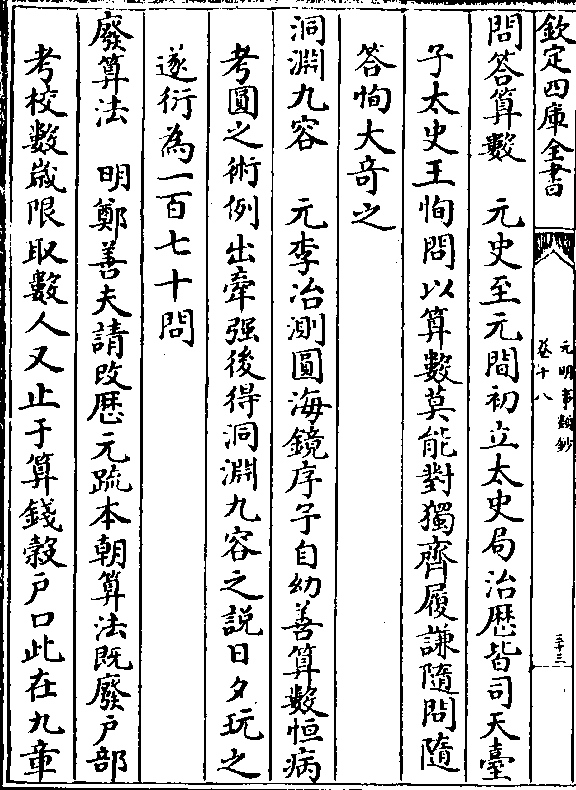 欽定四庫全書
元明事類鈔
卷十八
二十三
問答算數　元史至元間初立太史局治厯皆司天臺
子太史王恂問以算數莫能對獨齊履謙隨問隨
答恂大奇之
洞淵九容　元李冶測圓海鏡序予自幼善算數恒病
考圓之術例出牽强後得洞淵九容之說日夕玩之
遂衍為一百七十問
廢算法　明鄭善夫請改厯元疏本朝算法既廢户部
考校數歲限取數人又止于算錢穀户口此在九章